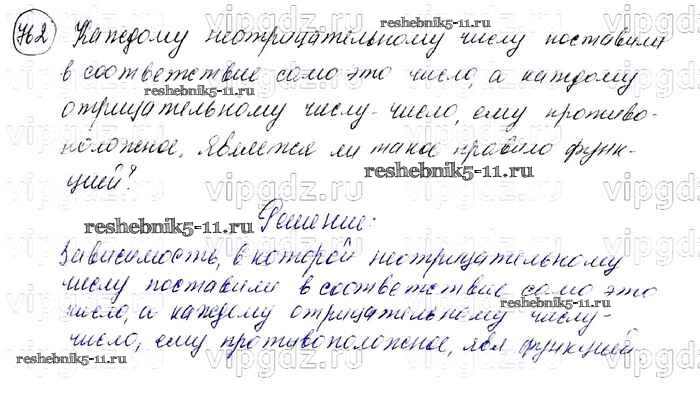 762 Каждому неотрицательному числу поставили
в соответствие само это число, а каждому
отрицательному числу-число, ему противо-
положное. Является ли такое правило функ-
цией?
Решение:
Зависимость, в которой неотрицательному
числу поставили в соответствие само это
число, а каждому отрицательному числу-
число, ему противоположное, явл функцией
reshebnik5-11.ru
reshebnik5-11.ru
reshebnik5-11.ru
reshebnik5-11.ru
reshebnik5-11.ru
reshebnik5-11.ru
vipgdz.ru